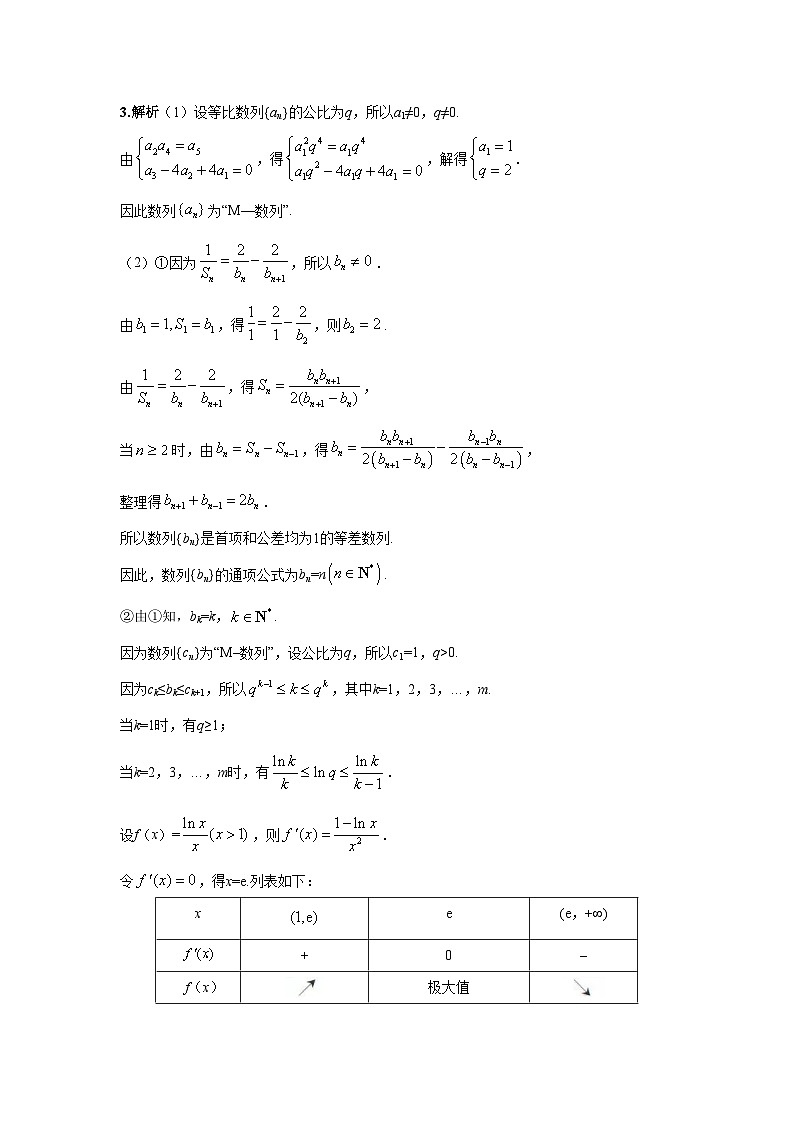 3.解析（1）设等比数列{aₙ}的公比为q，所以a₁≠0，q≠0.
由{a₂a₄=a₅，a₃−4a₂+4a₁=0，得{a₁²q⁴=a₁q⁴，a₁q²−4a₁q+4a₁=0，解得{a₁=1，q=2.
因此数列{aₙ}为“M—数列”.
（2）①因为1/Sₙ=2/bₙ−2/bₙ₊₁，所以bₙ≠0.
由b₁=1,S₁=b₁，得1/1=2/1−2/b₂，则b₂=2.
由1/Sₙ=2/bₙ−2/bₙ₊₁，得Sₙ=bₙbₙ₊₁/2(bₙ₊₁−bₙ)，
当n≥2时，由bₙ=Sₙ−Sₙ₋₁，得bₙ=bₙbₙ₊₁/2(bₙ₊₁−bₙ)−bₙ₋₁bₙ/2(bₙ−bₙ₋₁)，
整理得bₙ₊₁+bₙ₋₁=2bₙ.
所以数列{bₙ}是首项和公差均为1的等差数列.
因此，数列{bₙ}的通项公式为bₙ=n(n∈N*).
②由①知，bₖ=k，k∈N*.
因为数列{cₙ}为“M–数列”，设公比为q，所以c₁=1，q>0.
因为cₖ≤bₖ≤cₖ₊₁，所以qᵏ⁻¹≤k≤qᵏ，其中k=1，2，3，…，m.
当k=1时，有q≥1；
当k=2，3，…，m时，有ln k/k≤ln q≤ln k/k−1.
设f（x）=ln x/x(x>1)，则f′(x)=1−ln x/x².
令f′(x)=0，得x=e.列表如下：
x (1,e) e (e，+∞)
f′(x) + 0 –
f（x） ↗ 极大值 ↘